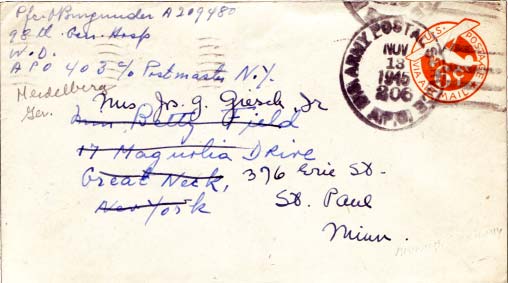 Pfc. O Burgunder A209480
98th Gen. Hosp
W.D.
APO 403 c/o Postmaster N.Y.
Heidelberg
Ger.
U.S. ARMY POSTAL
NOV
13
1945
206
A.P.O.
U.S. POSTAGE
6¢
VIA AIR MAIL
Mrs Jos. G. Giesch, Jr
Miss Betty Field
17 Magnolia Drive
Great Neck, 376 Erie St.
New York St. Paul
Minn.